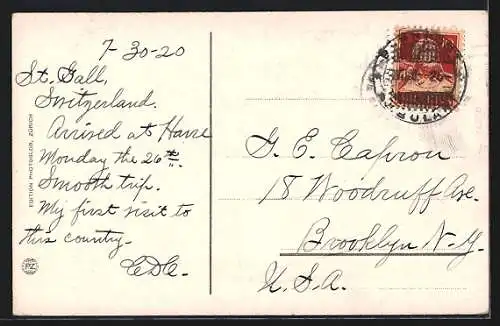 7-30-20
St. Gall,
Switzerland.
Arrived at Havre
Monday the 26th.
Smooth trip.
My first visit to
this country.
CDC.
EDITION PHOTOGLOB, ZÜRICH
G. E. Capron
18 Woodruff Ave.
Brooklyn N.Y.
U.S.A.